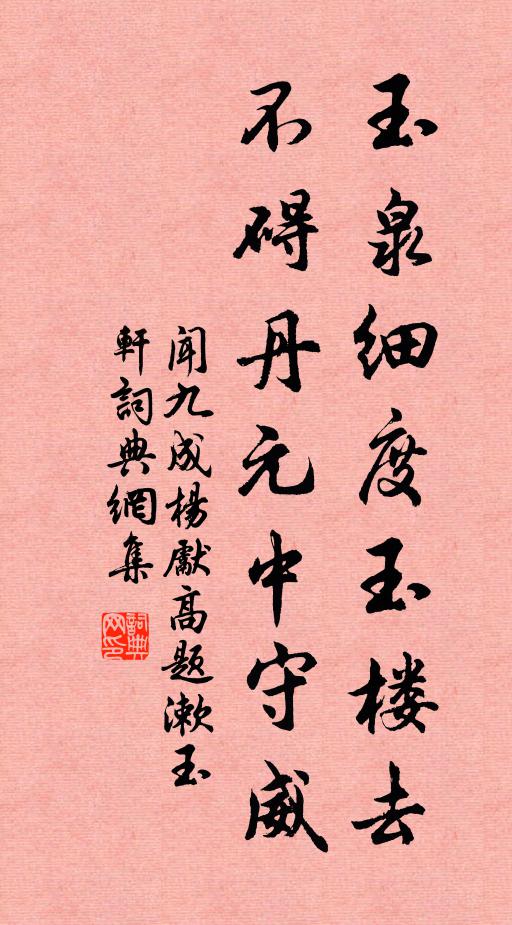 玉泉细度玉楼去
不碍丹元中守威
闻九成杨献高题漱玉
轩词典网集
词典网印